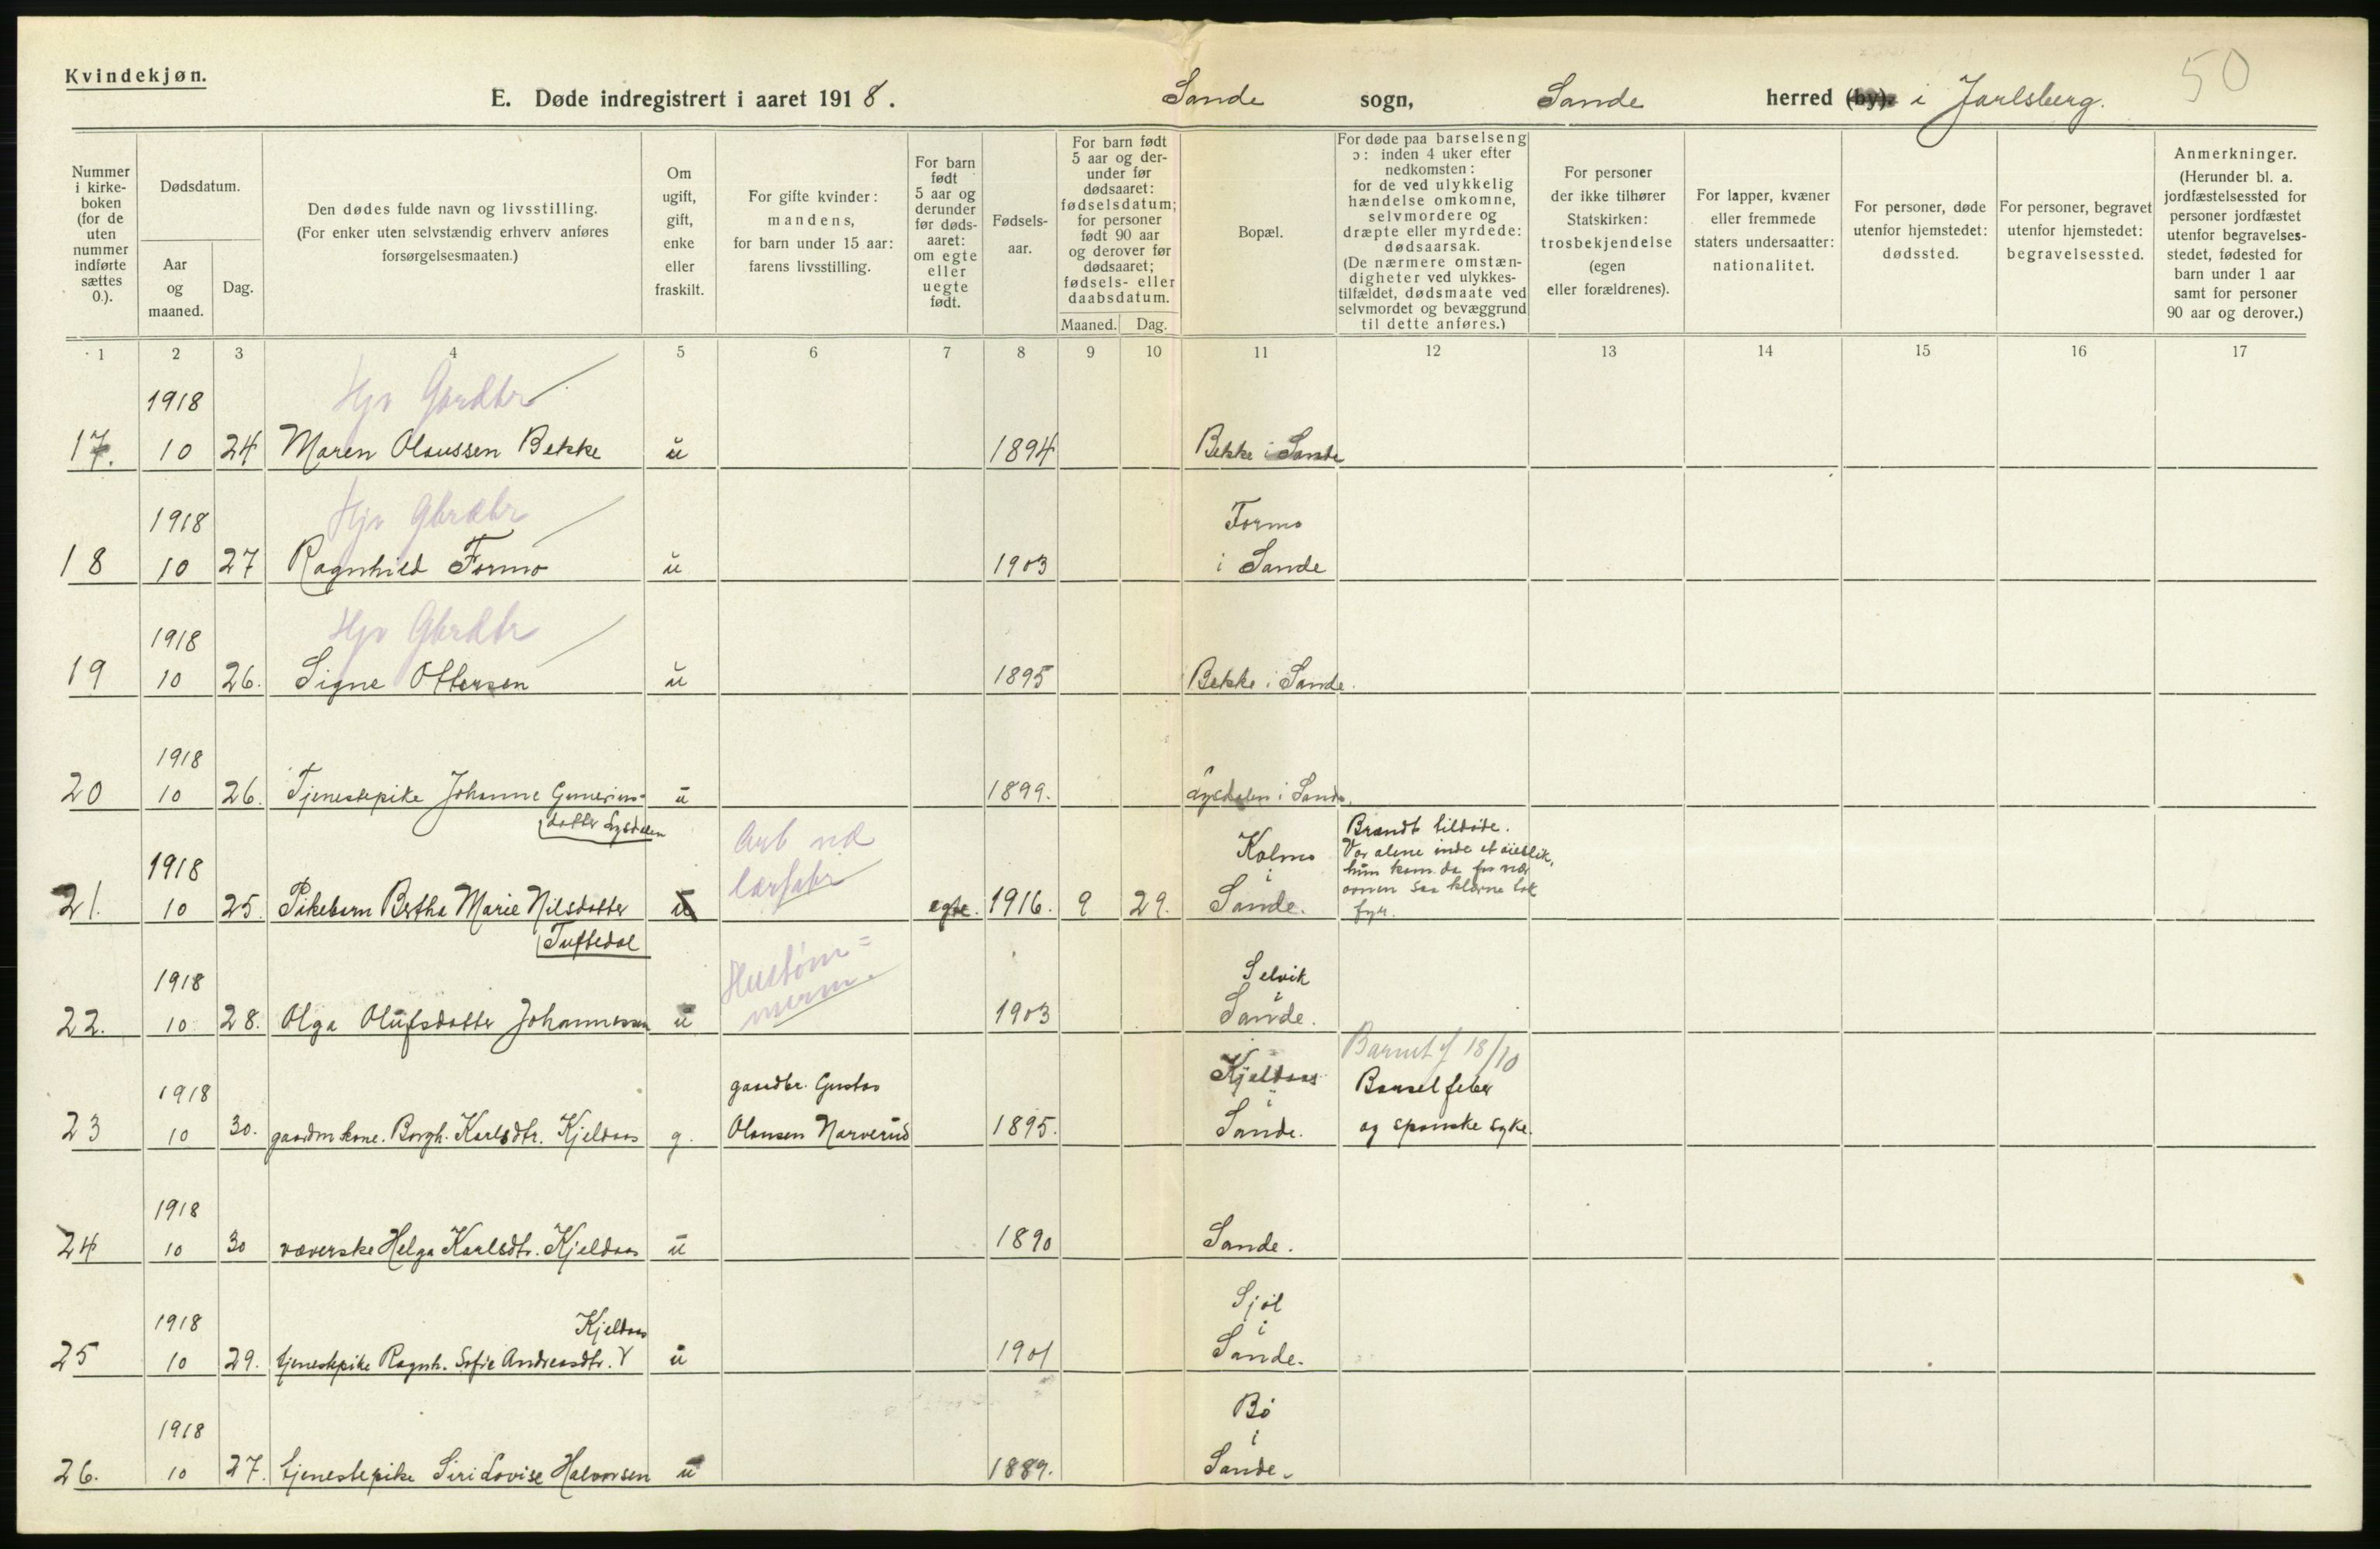 Kvindekjøn.
E. Døde indregistrert i aaret 1918. Sande sogn, Sande herred (by). i Jarlsberg.
50
Nummer
i kirke-
boken
(for de
uten
nummer
indførte
sættes
0.).
Dødsdatum.
Aar
og
maaned.
Dag.
Den dødes fulde navn og livsstilling.
(For enker uten selvstændig erhverv anføres
forsørgelsesmaaten.)
Om
ugift,
gift,
enke
eller
fraskilt.
For gifte kvinder:
mandens,
for barn under 15 aar:
farens livsstilling.
For barn
født
5 aar og
derunder
før døds-
aaret:
om egte
eller
uegte
født.
Fødsels-
aar.
For barn født
5 aar og der-
under før
dødsaaret:
fødselsdatum;
for personer
født 90 aar
og derover før
dødsaaret;
fødsels- eller
daabsdatum.
Maaned. Dag.
Bopæl.
For døde paa barselseng
ɔ: inden 4 uker efter
nedkomsten:
for de ved ulykkelig
hændelse omkomne,
selvmordere og
dræpte eller myrdede:
dødsaarsak.
(De nærmere omstæn-
digheter ved ulykkes-
tilfældet, dødsmaate ved
selvmordet og bevæggrund
til dette anføres.)
For personer
der ikke tilhører
Statskirken:
trosbekjendelse
(egen
eller forældrenes).
For lapper, kvæner
eller fremmede
staters undersaatter:
nationalitet.
For personer, døde
utenfor hjemstedet:
dødssted.
For personer, begravet
utenfor hjemstedet:
begravelsessted.
Anmerkninger.
(Herunder bl. a.
jordfæstelsessted for
personer jordfæstet
utenfor begravelses-
stedet, fødested for
barn under 1 aar
samt for personer
90 aar og derover.)
1 2 3 4 5 6 7 8 9 10 11 12 13 14 15 16 17
1918 Hjv Gardbr
17. 10 24 Maren Olaussen Bekke u 1894 Bekke i Sande
1918 Hjv Gbrdbr Formo
18 10 27 Ragnhild Formo u 1903 i Sande
1918 Hjv Gbrdbr
19 10 26. Signe Ottersen u 1895 Bekke i Sande.
1918
20 10 26. Tjenestepike Johanne Gunerius- u 1899. Lysdalen i Sande.
datter Lysdalen
1918 Arb ved
Kolmo
i
Brændt tildøde.
Var alene inde et øieblik,
hun kom da for nær
ovnen saa klærne tok
fyr.
21. 10 25. Pikebarn Bertha Marie Nilsdatter u egte. 1916. 9 29. Sande.
Tuftedal
1918 Hustøm=
merm.
Selvik
i
22. 10 28. Olga Olufsdatter Johannessen u 1903 Sande.
1918 gaardbr. Gustav
Kjeldaas
i
Barnet f 18/10
Barselfeber
23 10 30. gaardm kone. Borgh. Karlsdtr. Kjeldaas g. Olausen Narverud 1895. Sande. og spanske syke.
1918
24 10 30 væverske Helga Karlsdtr. Kjeldaas u 1890 Sande.
1918 Kjeldaas
Sjøl
i
25 10 29. tjenestepike Ragnh. Sofie Andreasdtr. V u 1901 Sande.
1918
Bø
i
26. 10 27. tjenestepike Siri Lovise Halvorsen u 1889. Sande.